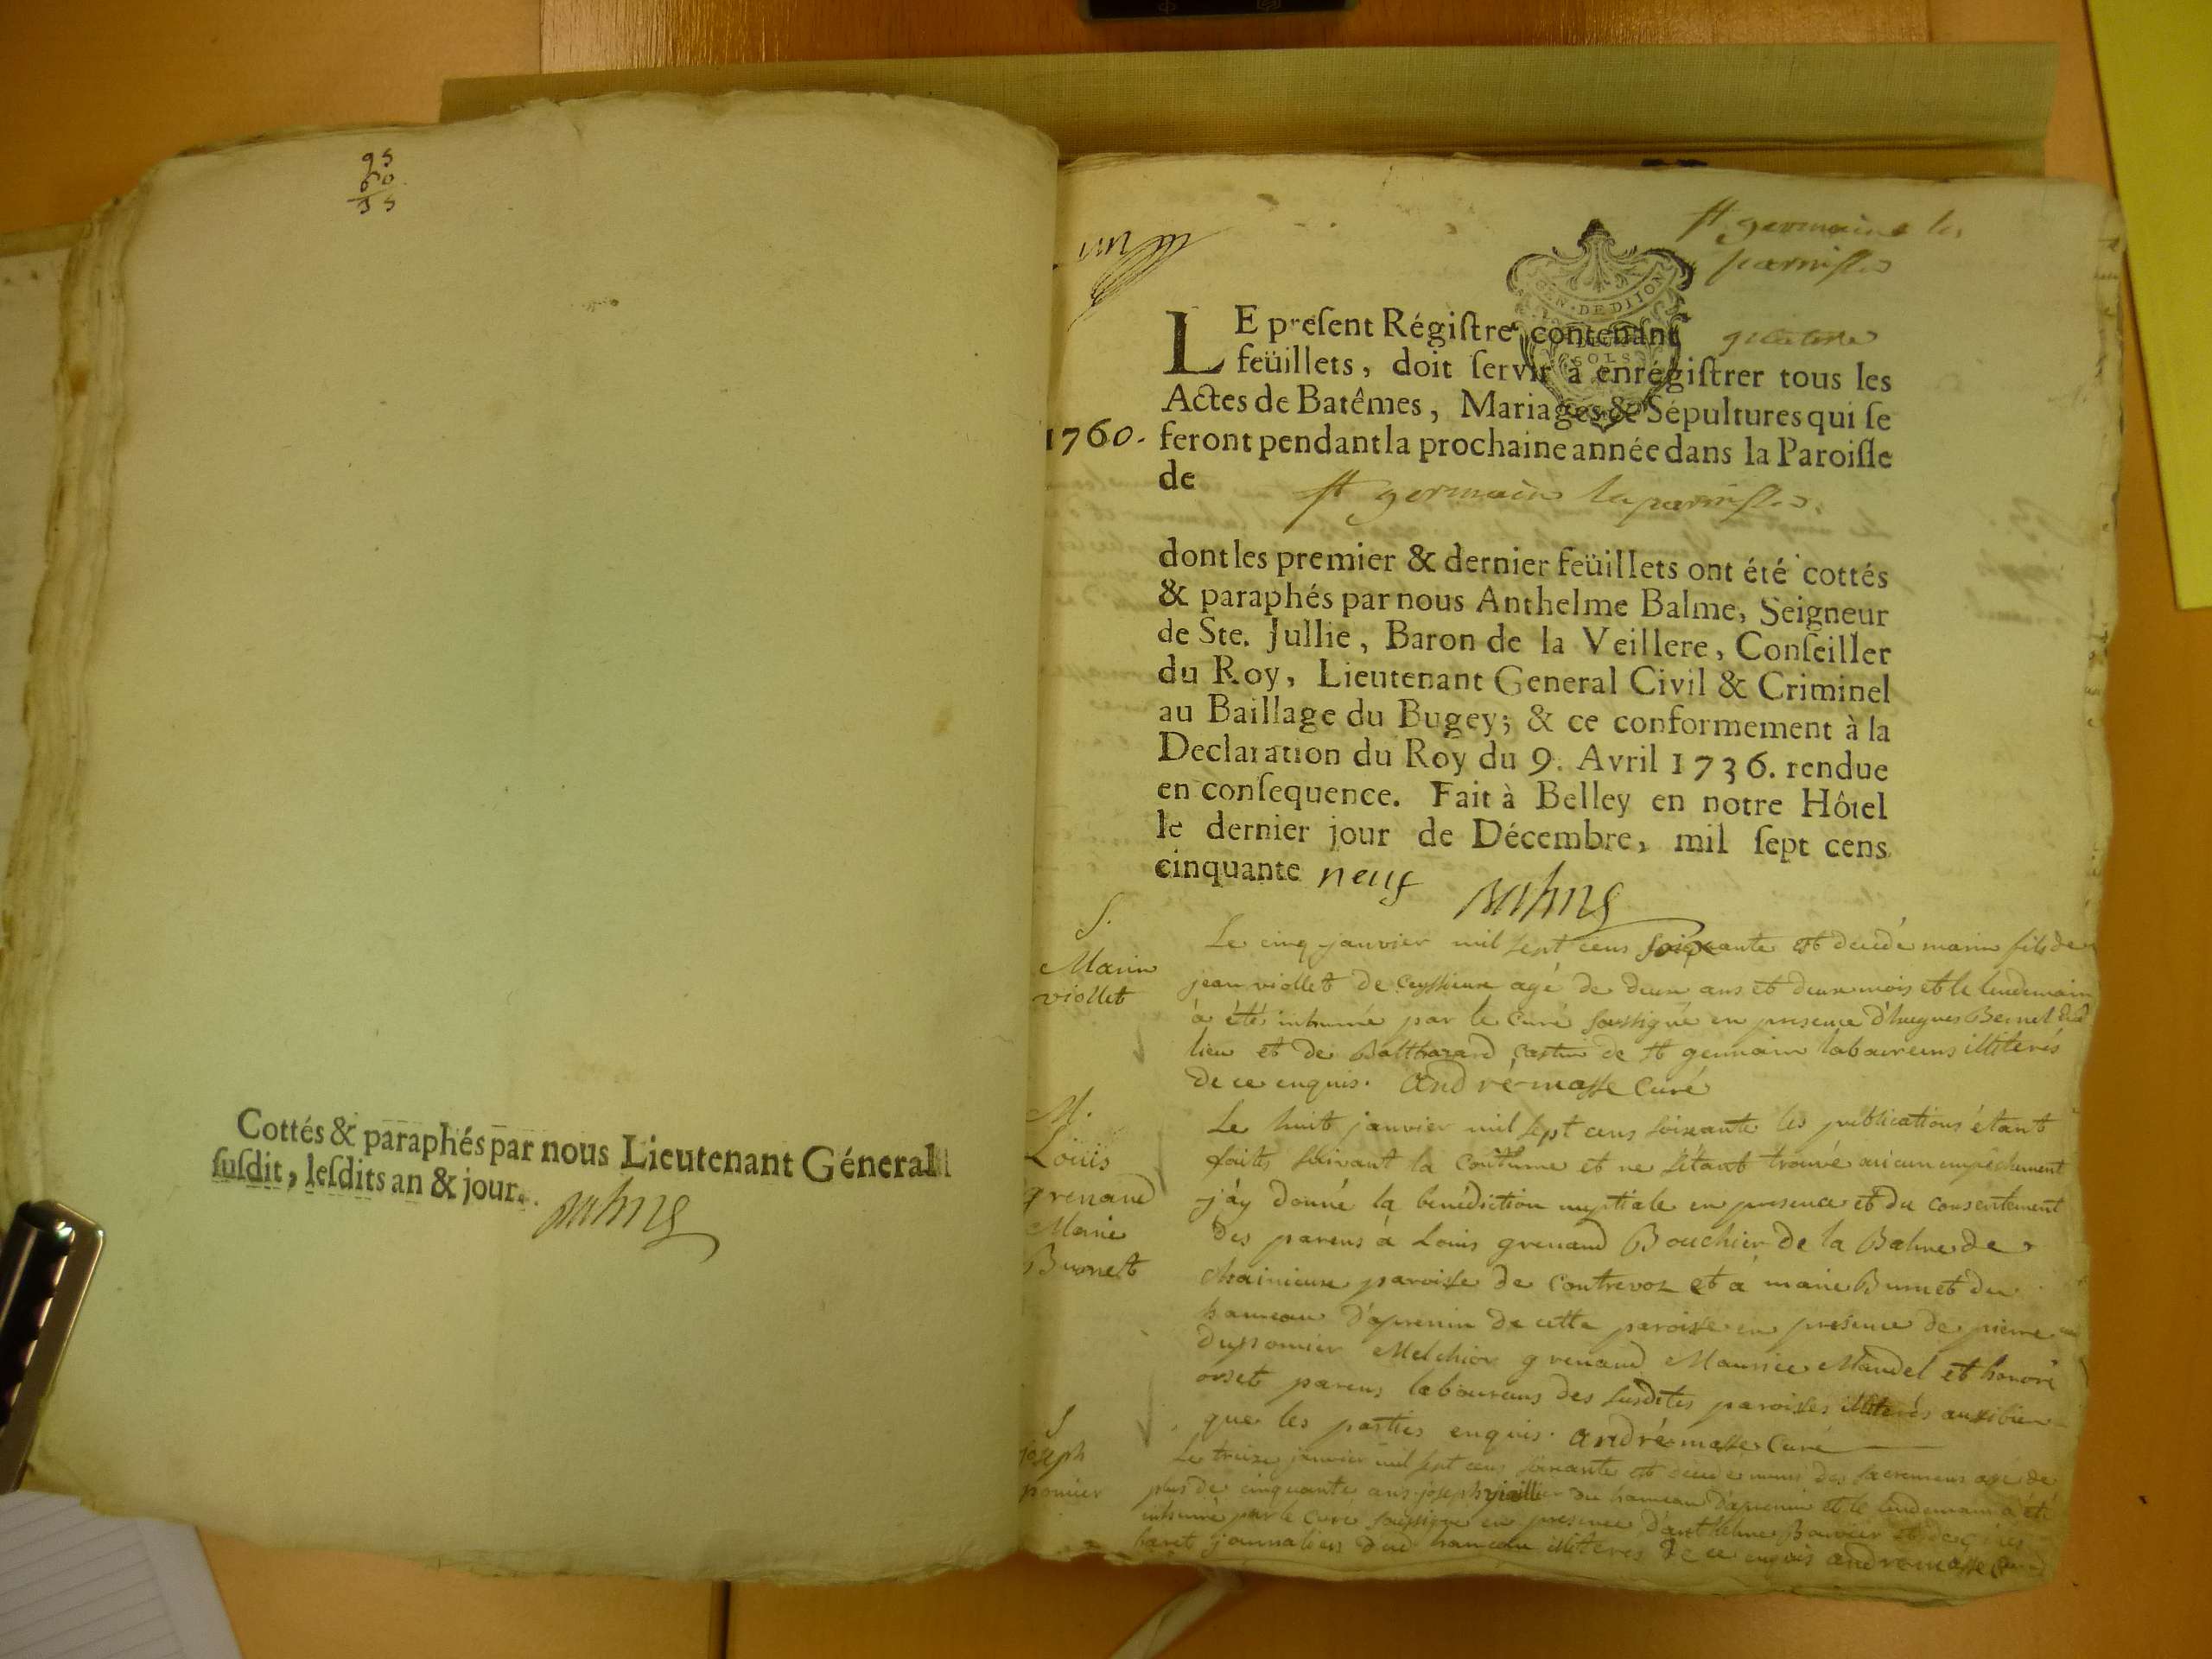 95
60
35
Cottés & paraphés par nous Lieutenant Géneral
susdit, lesdits an & jour.
un
st germain les
paroisses
GEN. DE DIJON
SOLS
LE present Régistre contenant quatorse
feüillets, doit servir à enrégistrer tous les
Actes de Batêmes, Mariages & Sépultures qui se
1760. feront pendant la prochaine année dans la Paroisse
de st germain les paroisses
dont les premier & dernier feüillets ont été cottés
& paraphés par nous Anthelme Balme, Seigneur
de Ste. Jullie, Baron de la Veillere, Conseiller
du Roy, Lieutenant General Civil & Criminel
au Baillage du Bugey; & ce conformement à la
Declaration du Roy du 9. Avril 1736. rendue
en consequence. Fait à Belley en notre Hôtel
le dernier jour de Décembre, mil sept cens
cinquante neuf
S.
Marin
viollet
Le cinq janvier mil sept cens soixante est decedé marin fils de
jean viollet de Ceyssieux agé de deux ans et deux mois et le lendemain
à été inhumé par le Curé soussigné en presence d'hugues Bernel
lieu et de Balthazard castin de st germain laboureurs illiterés
de ce enquis. andré masse Curé
M.
Loüis
grenaud
Marie
Burnet
Le huit janvier mil sept cens soixante les publications étant
faites suivant la Coûtume et ne s'étant trouvé aucun empechement
j'ay donné la benédiction nuptiale en presence et du consentement
des parens à Louis grenaud Bouchier de la Balme de
chainieux paroisse de Contrevoz et à marie Burnet du
hameau d'aprenin de cette paroisse en presence de pierre
dupomier Melchior grenaud Maurice Mandel et honoré
orset parens laboureurs des susdites paroisses illiterés aussi bien
que les parties enquis. andré masse Curé
S
joseph
pomier
Le treize janvier mil sept cens soixante est decedé muni des sacremens agé de
plus de cinquante ans joseph du hameau d'aprenin et le lendemain a été
inhumé par le Curé soussigné en presence d'anthelme Bouvier et de
journaliers dud hameau illiteres de ce enquis andre masse Curé